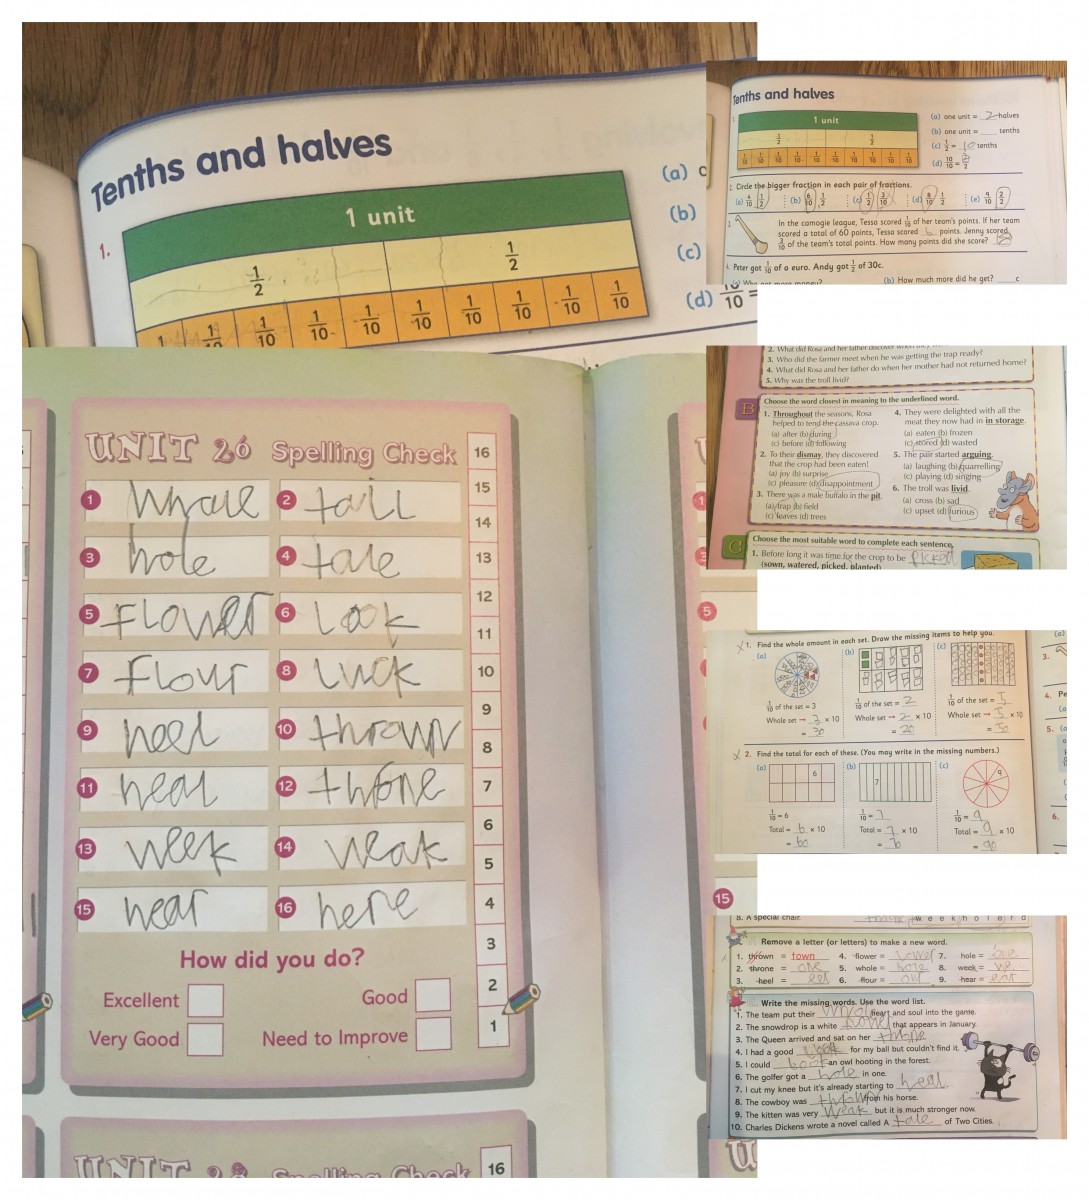 Tenths and halves
1.
1 unit
1/2 1/2
1/10 1/10 1/10 1/10 1/10 1/10 1/10 1/10 1/10
(a)
(b)
(c)
(d) 10/10 =
UNIT 26 Spelling Check
1 Whale 2 tail
3 hole 4 tale
5 Flower 6 look
7 Flour 8 luck
9 heel 10 thrown
11 heal 12 throne
13 week 14 weak
15 hear 16 here
16
15
14
13
12
11
10
9
8
7
6
5
4
3
2
1
How did you do?
Excellent Good
Very Good Need to Improve
Spelling Check
16
5
15
Tenths and halves
1 unit
1/2 1/2
1/10 1/10 1/10 1/10 1/10 1/10 1/10 1/10 1/10 1/10
(a) one unit = 2 halves
(b) one unit = ___ tenths
(c) 1/2 = 10 tenths
(d) 10/10 = /2
2. Circle the bigger fraction in each pair of fractions.
(a) 4/10 1/2 (b) 6/10, 1/2 (c) 1/2 3/10 (d) 8/10 1/2 (e) 9/10 2/2
3. In the camogie league, Tessa scored 1/10 of her team's points. If her team
scored a total of 60 points, Tessa scored 6 points. Jenny scored
3/10 of the team's total points. How many points did she score?
4. Peter got 1/10 of a euro. Andy got 1/2 of 30c.
(a) Who got more money? (b) How much more did he get? ___ c
2. What did Rosa and her father discover when they
3. Who did the farmer meet when he was getting the trap ready?
4. What did Rosa and her father do when her mother had not returned home?
5. Why was the troll livid?
B Choose the word closest in meaning to the underlined word.
1. Throughout the seasons, Rosa
helped to tend the cassava crop.
(a) after (b) during
(c) before (d) following
2. To their dismay, they discovered
that the crop had been eaten!
(a) joy (b) surprise
(c) pleasure (d) disappointment
3. There was a male buffalo in the pit.
(a) trap (b) field
(c) leaves (d) trees
4. They were delighted with all the
meat they now had in in storage.
(a) eaten (b) frozen
(c) stored (d) wasted
5. The pair started arguing.
(a) laughing (b) quarrelling
(c) playing (d) singing
6. The troll was livid.
(a) cross (b) sad
(c) upset (d) furious
C Choose the most suitable word to complete each sentence.
1. Before long it was time for the crop to be picked
(sown, watered, picked, planted)
1. Find the whole amount in each set. Draw the missing items to help you.
(a) (b) (c)
1/10 of the set = 3 1/10 of the set = 2 1/10 of the set = 5
Whole set → 3 x 10 Whole set → 2 x 10 Whole set → 5 x 10
= 30 = 20 = 50
2. Find the total for each of these. (You may write in the missing numbers.)
(a) 6 (b) 7 (c) 9
1/10 = 6 1/10 = 7 1/10 = 9
Total = 6 x 10 Total = 7 x 10 Total = 9 x 10
= 60 = 70 = 90
(a)
3.
4. Pe
(a
5. (a
6.
8. A special chair. w e e k h o l e
Remove a letter (or letters) to make a new word.
1. thrown = town 4. flower = lower 7. hole =
2. throne = one 5. whole = hole 8. week = we
3. heel = eel 6. flour = our 9. hear = ear
Write the missing words. Use the word list.
1. The team put their whole heart and soul into the game.
2. The snowdrop is a white flower that appears in January.
3. The Queen arrived and sat on her throne
4. I had a good look for my ball but couldn't find it.
5. I could an owl hooting in the forest.
6. The golfer got a hole in one.
7. I cut my knee but it's already starting to heal.
8. The cowboy was thrown from his horse.
9. The kitten was very weak but it is much stronger now.
10. Charles Dickens wrote a novel called A tale of Two Cities.